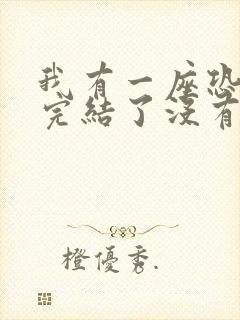 我有一座恐
完結了沒有
橙優秀.